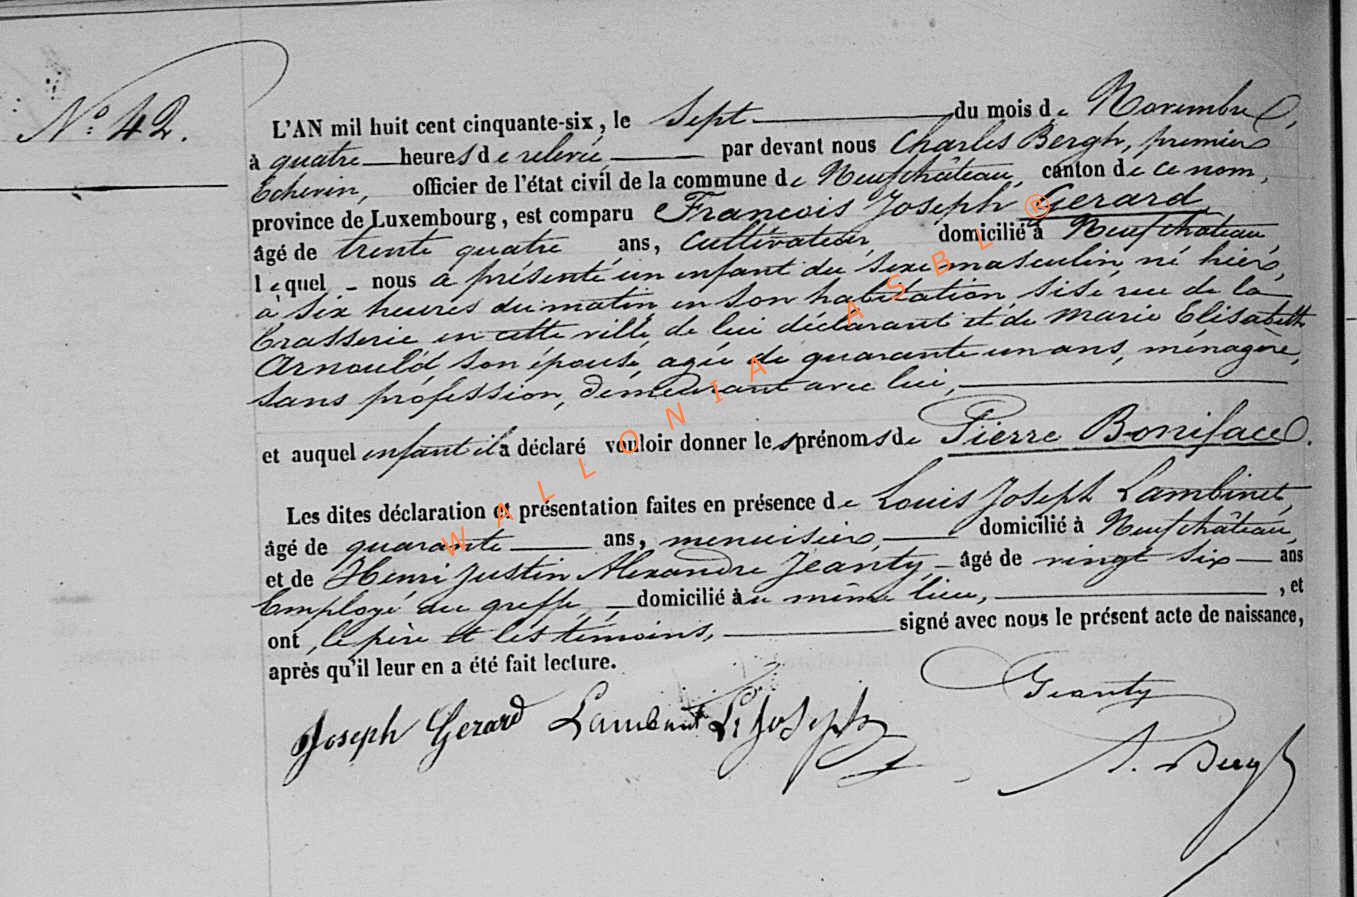 N.º 42.
L'AN mil huit cent cinquante-six, le Sept du mois de Novembre,
à quatre heures de relevée, par devant nous Charles Bergh, premier
Echevin, officier de l'état civil de la commune de Neufchâteau, canton de ce nom,
province de Luxembourg, est comparu François Joseph Gerard,
âgé de trente quatre ans, cultivateur, domicilié à Neufchâteau,
lequel nous a présenté un enfant du sexe masculin, né hier,
à six heures du matin, en son habitation, sise rue de la
brasserie en cette ville, de lui déclarant et de Marie Elisabeth
Arnould son épouse, agée de quarante un ans, ménagère,
sans profession, demeurant avec lui,
et auquel enfant il a déclaré vouloir donner les prénoms de Pierre Boniface.
Les dites déclaration et présentation faites en présence de Louis Joseph Lambinet,
âgé de quarante ans, menuisier, domicilié à Neufchâteau,
et de Henri Justin Alexandre Jeanty, âgé de vingt six ans
Employé au greffe, domicilié au même lieu, , et
ont, le père et les témoins, signé avec nous le présent acte de naissance,
après qu'il leur en a été fait lecture.
Jeanty
Joseph Gerard Lambinet Ls Joseph
Bergh
WALLONIA ASBL ®